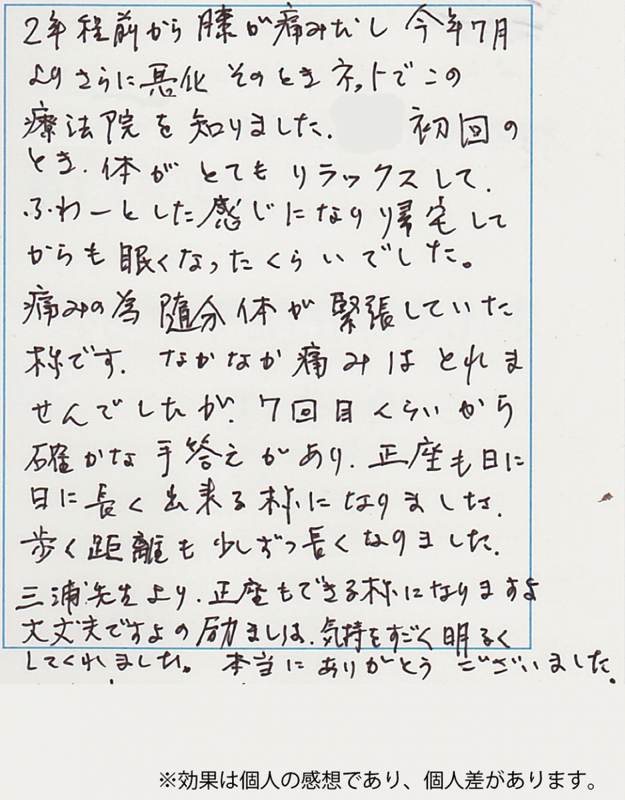 2年程前から膝が痛みだし 今年7月
よりさらに悪化 そのときネットでこの
療法院を知りました. 初回の
とき.体がとてもリラックスして.
ふわーとした感じになり帰宅して
からも眠くなったくらいでした。
痛みの為随分体が緊張していた
様です. なかなか痛みはとれま
せんでしたが.7回目くらいから
確かな手答えがあり.正座も日に
日に長く出来る様になりました.
歩く距離も少しずつ長くなりました.
三浦先生より.正座もできる様になりますよ
大丈夫ですよの励ましは.気持をすごく明るく
してくれました。 本当にありがとうございました.
※効果は個人の感想であり、個人差があります。